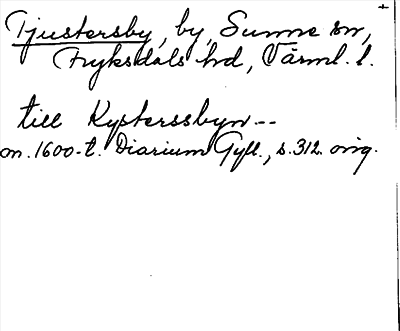 Tjustersby, by, Sunne sn,
Fryksdals hd, Värml. l.
till Kysterssbyn --
on. 1600-t. Diarium Gyll., s. 312. orig.